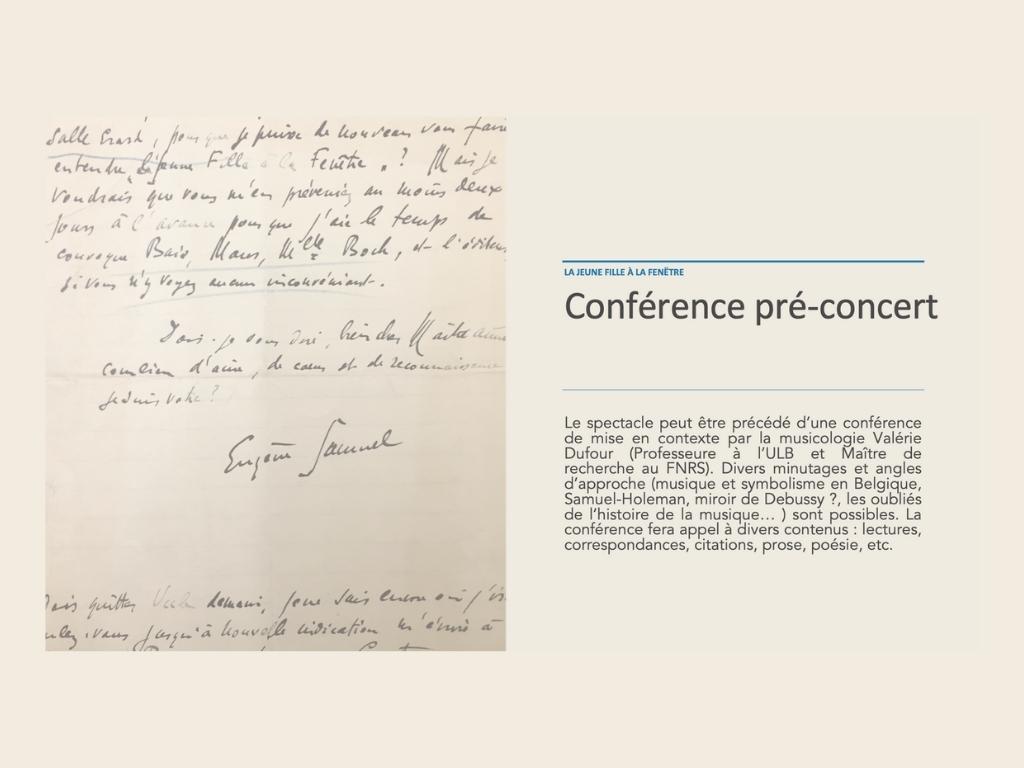 salle Erard, pour que je puisse de nouveau vous faire
entendre "la jeune Fille à la Fenêtre" ? Mais je
voudrais que vous m'en préveniez au moins deux
jours à l'avance pour que j'aie le temps de
convoquer Maus, Mlle Boch, et l'éditeur
si vous n'y voyez aucun inconvénient.
Dois-je vous dire, bien cher Maître
combien d'amie, de cœur et de reconnaissance
je suis votre ?
Eugène Samuel
quitter demain, je ne sais encore où j'
vous jusqu'à nouvelle indication m'écrire à
LA JEUNE FILLE À LA FENÊTRE
Conférence pré-concert
Le spectacle peut être précédé d'une conférence
de mise en contexte par la musicologie Valérie
Dufour (Professeure à l'ULB et Maître de
recherche au FNRS). Divers minutages et angles
d'approche (musique et symbolisme en Belgique,
Samuel-Holeman, miroir de Debussy ?, les oubliés
de l'histoire de la musique… ) sont possibles. La
conférence fera appel à divers contenus : lectures,
correspondances, citations, prose, poésie, etc.